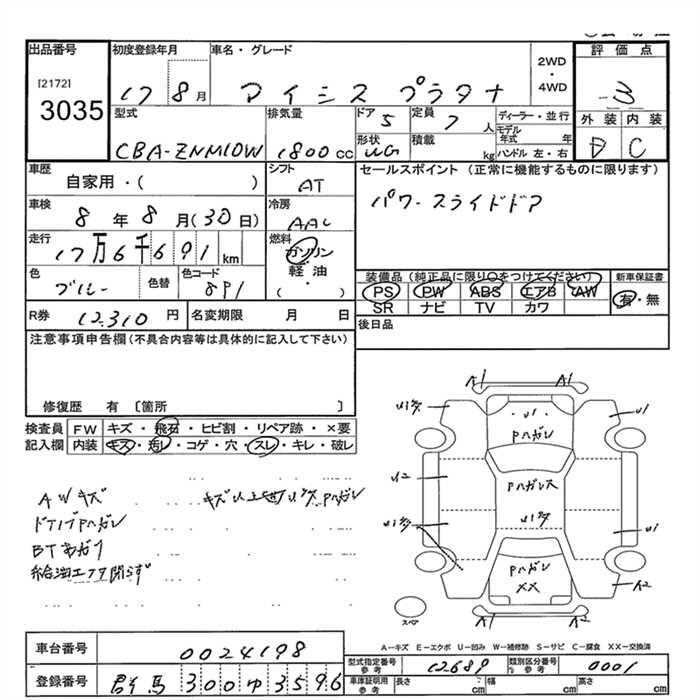 出品番号 初度登録年月 車名・グレード 2WD ・ 4WD 評価点
[2172]
3035 17 8月 アイシス プラタナ 3
型式 排気量 ドア 5 定員 7人 ディーラー・並行 外装 内装
モデル年式 年
CBA-ZNM10W 1800cc 形状 WG 積載 kg ハンドル 左・右 D C
車歴 シフト セールスポイント(正常に機能するものに限ります)
自家用・( ) AT パワースライドドア
車検 8年8月(30日) 冷房 AAC
走行 17万6千691km 燃料 ガソリン・軽油・( )
色 ブルー 色替 色コード 8P1 装備品(純正品に限り○をつけてください) 新車保証書
PS PW ABS エアB AW 有・無
SR ナビ TV カワ
R券 12,310円 名変期限 月 日 後日品
注意事項申告欄(不具合内容等は具体的に記入して下さい)
修復歴 有〔箇所 〕
検査員 FW キズ・飛石・ヒビ割・リペア跡・×要
記入欄 内装 キズ・汚レ・コゲ・穴・スレ・キレ・破レ
A1 A1
U1 Pハガレ U1
A2 PハガレX
U1 A2
Pハガレ
XX
スペア
AWキズ
ドアノブPハガレ
給油エフタ開らず
A－キズ E－エクボ U－凹み W－補修跡 S－サビ C－腐食 XX－交換済
車台番号 0024198 型式指定番号 参考 12689 類別区分番号 参考 0001
登録番号 群馬 300ゆ3596 車庫証明用 参考 長さ cm 幅 cm 高さ cm